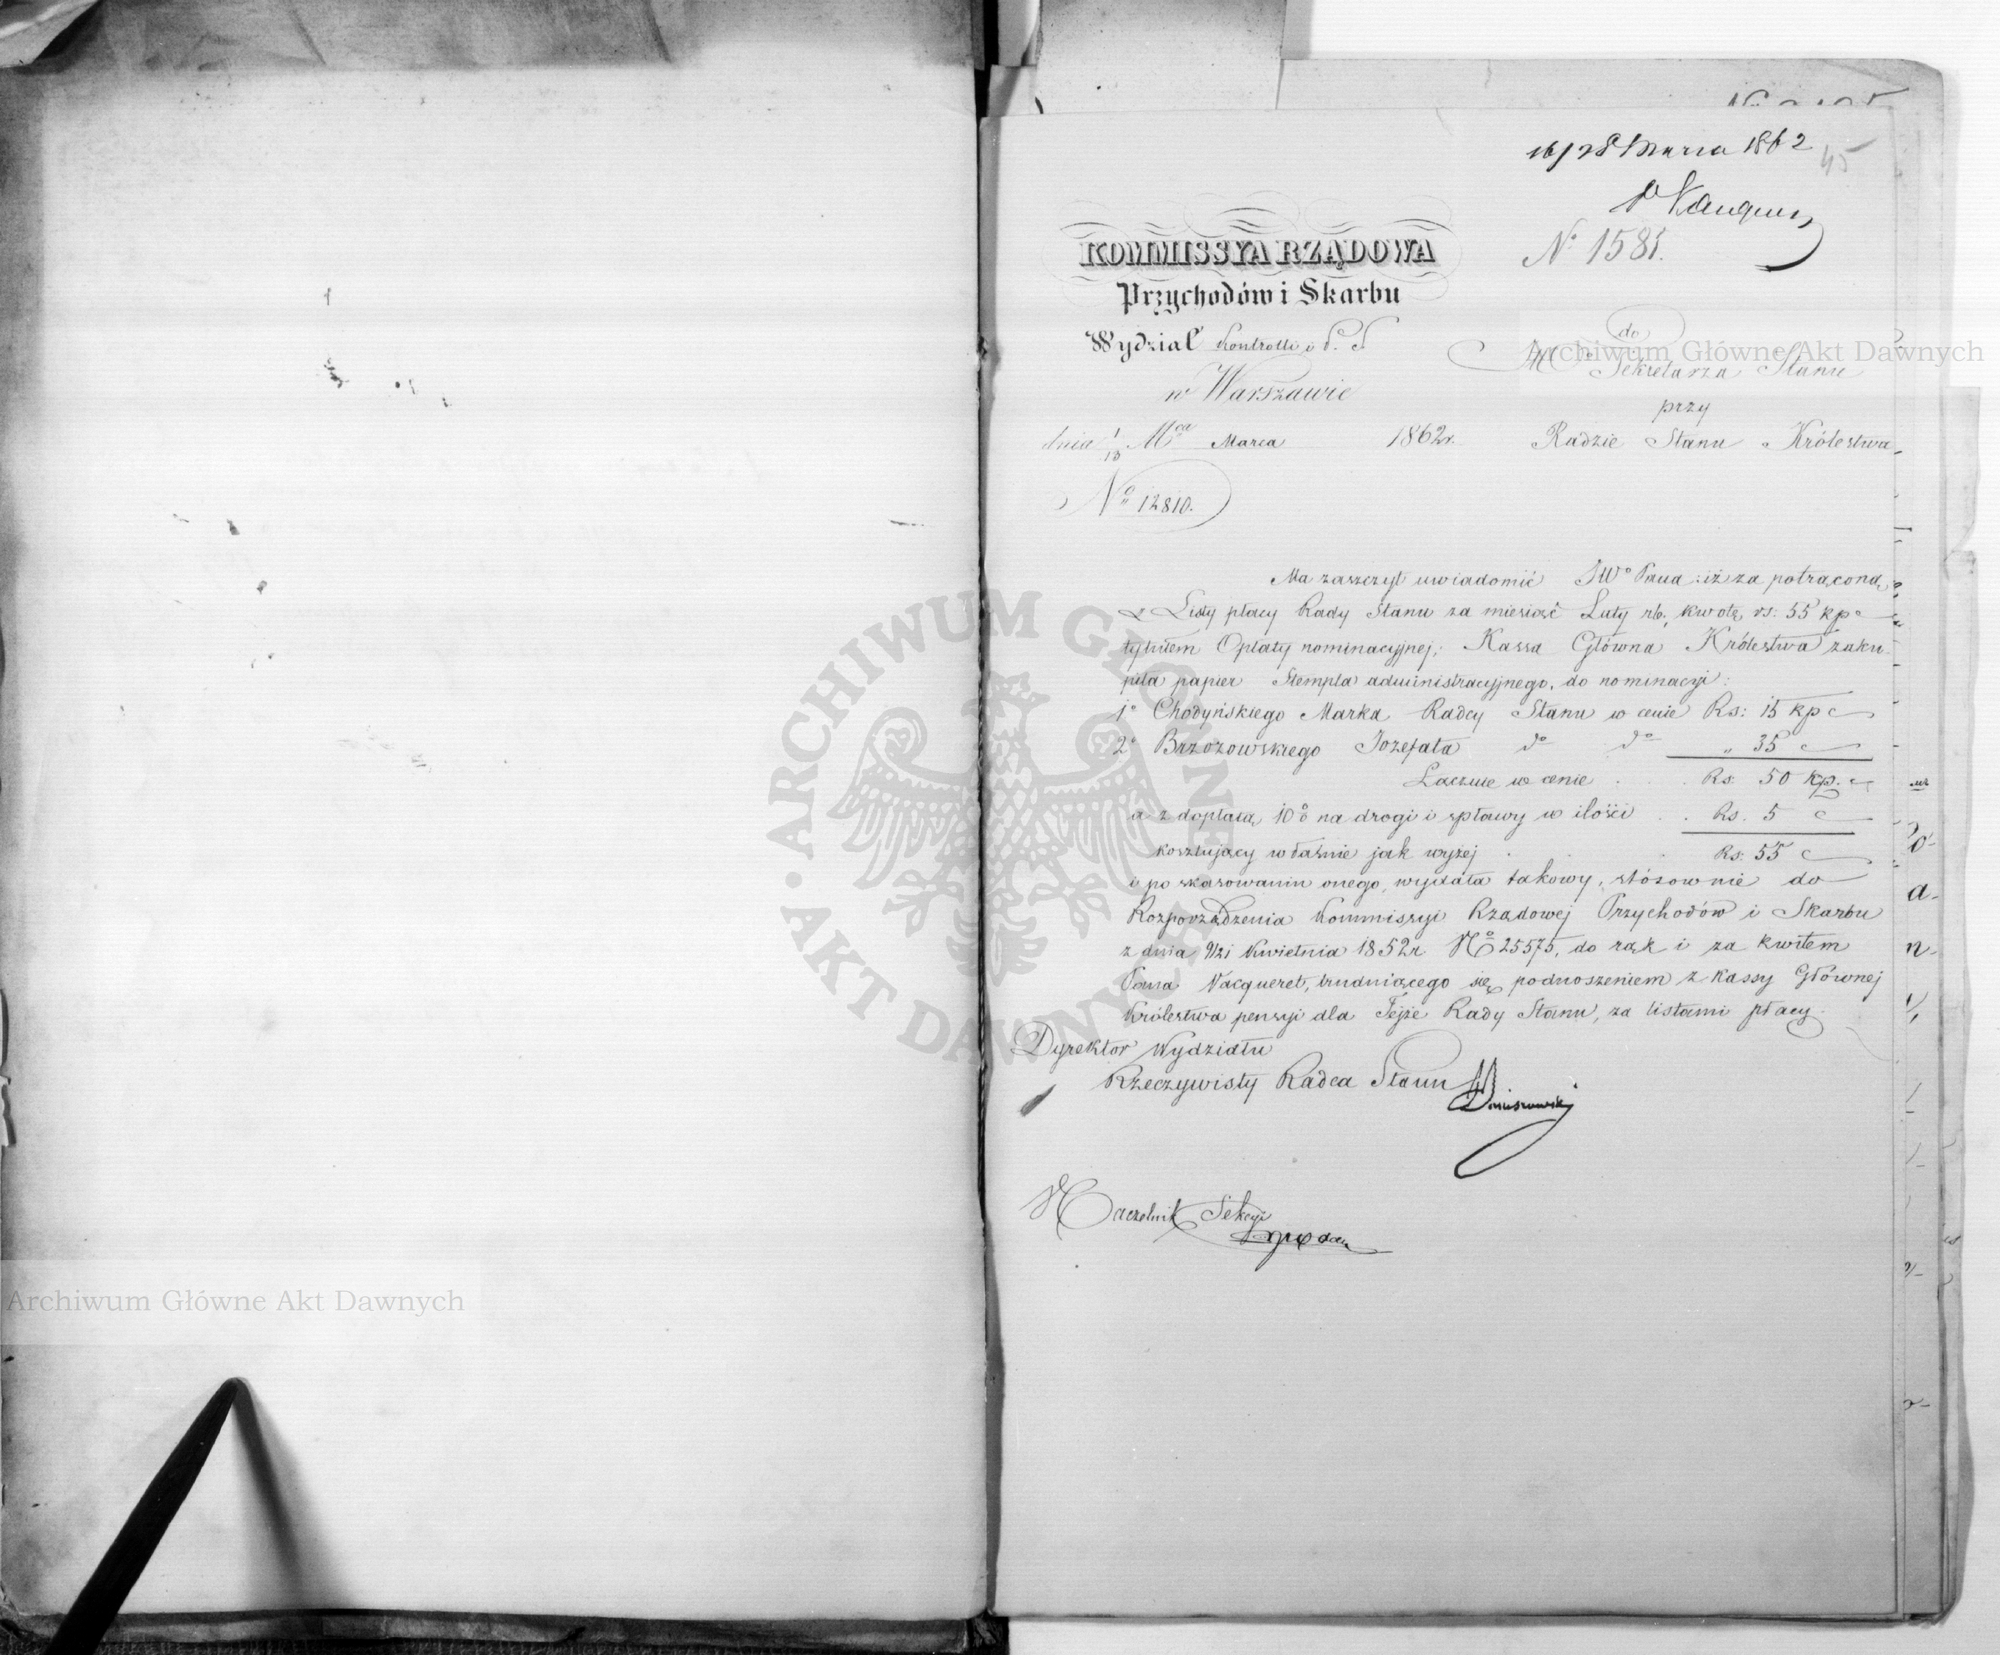 16/28 Marca 1862
45
No 1581.
KOMMISSYA RZĄDOWA
Przychodów i Skarbu
Wydział Kontrolli i
w Warszawie
dnia 1/13 Mca Marca 1862 r.
No 12810.
do
Sekretarza Stanu
przy
Radzie Stanu Królestwa
Ma zaszczyt uwiadomić JWo Pana iż za potrąconą
z Listy płacy Rady Stanu za miesiąc Luty rb, kwotę rs: 55 kp
tytułem Opłaty nominacyjnej, Kassa Główna Królestwa zaku-
piła papier Stempla administracyjnego, do nominacyi:
1o Chodyńskiego Marka Radcy Stanu w cenie Rs: 15 kp
2o Brzozowskiego Jozefata do do " 35
Łącznie w cenie . . Rs. 50 kp.
a z dopłatą 10% na drogi i spławy w ilości . . Rs. 5
kosztujący właśnie jak wyżej . . Rs: 55
i po skasowaniu onego, wydała takowy, stósownie do
Rozporządzenia Kommissyi Rządowej Przychodów i Skarbu
z dnia 9/21 Kwietnia 1852 r. No 25575, do rąk i za kwitem
Pana Vacqueret, trudniącego się podnoszeniem z Kassy Głównej
Królestwa pensyi dla Tejże Rady Stanu, za listami płacy.
Dyrektor Wydziału
Rzeczywisty Radca Stanu
Naczelnik Sekcyi
Archiwum Główne Akt Dawnych
Archiwum Główne Akt Dawnych
ARCHIWUM GŁÓWNE AKT DAWNYCH